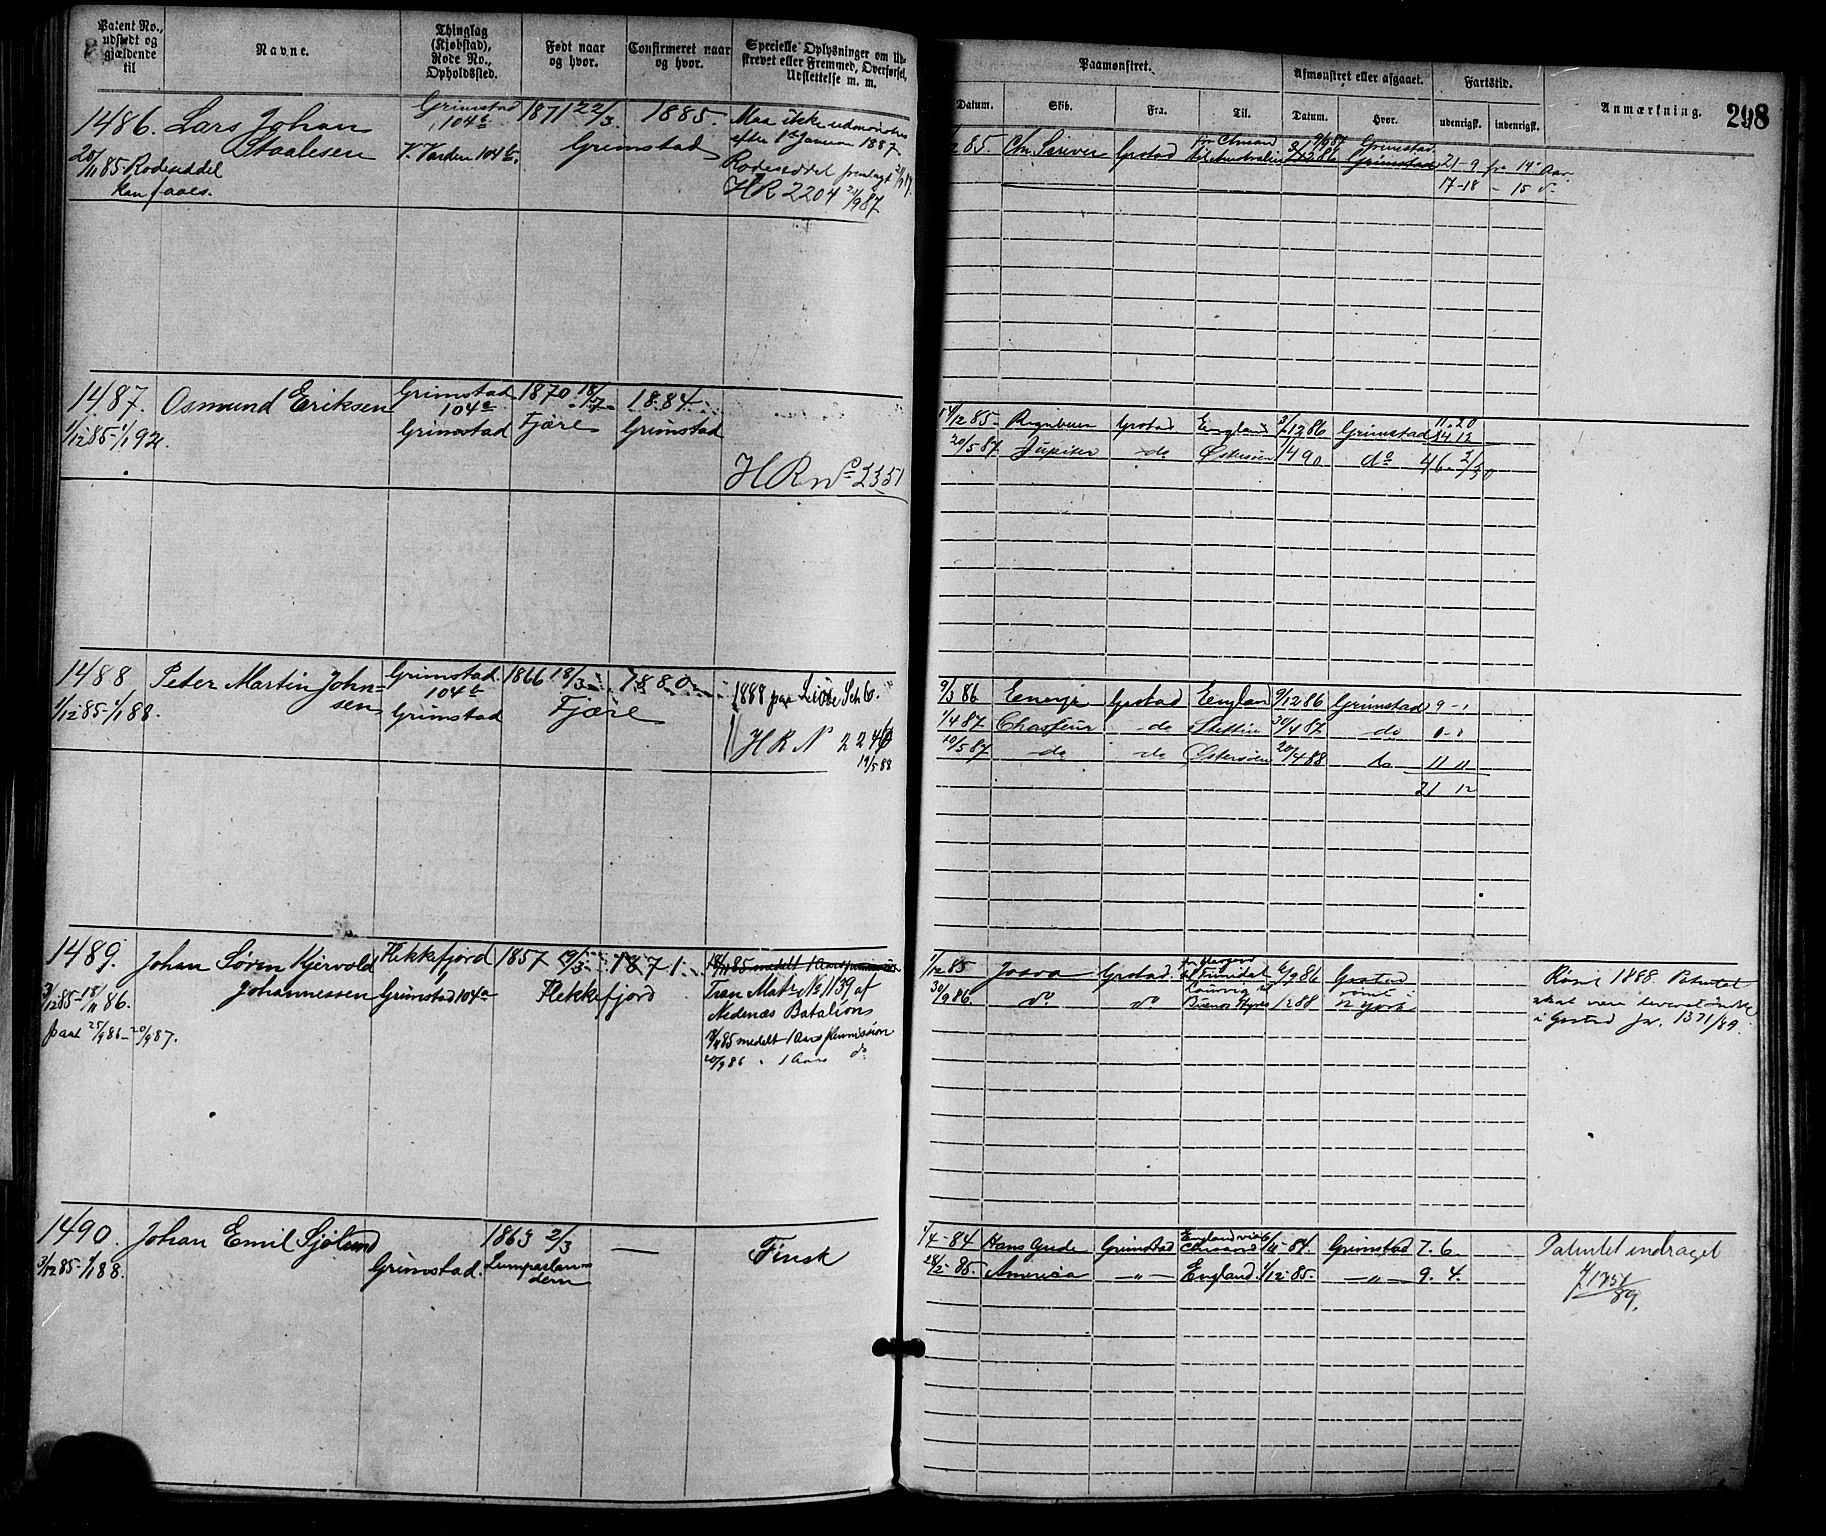 Patent No.,
udstedt og
gjældende
til
Navne.
Thinglag
(Kjøbstad),
Rode No.,
Opholdssted.
Født naar
og hvor.
Confirmeret naar
og hvor.
Specielle Oplysninger om Ud-
skrevet eller Fremmed, Overførsel,
Udslettelse m. m.
Paamønstret.
Datum.
Skib.
Fra.
Til.
Afmønstret eller afgaaet.
Datum.
Hvor.
Fartstid.
udenrigsk.
indenrigsk.
Anmærkning.
298
1486. Lars Johan
Staalesen
20/11 85 Rodeseddel
kan faaes.
Grimstad
104
V. Varden 104
1871 22/3
Grimstad
1885.
Maa ikke udmønstres
efter 1ste Januar 1887
Rodeseddel fremlagt
HR 2204 21/9 87
85.
Grstad
til Australien
9/9 87
Grimstad
Grimstad
21-9 fr 14 Aar
17-18 - 15
1487. Osmund Eriksen
1/12 85-1/1 92.
Grimstad
104
Grimstad
1870 18/7
Fjære
1884
Grimstad
HR No 2351
14/12 85 Grstad England 3/12 86 Grimstad
11.20
34.12
20/5 87 Jupiter do Østersøen 1490 do 46
1488 Peter Martin John-
sen
1/12 85-1/1 88.
Grimstad
104
Grimstad
1866 18/3
Fjære
1880
1888 paa
HR N 2240
19/5 88
9/3 86 Grstad England 9/12 86 Grimstad 9-1
1/4 87 Chasseur do Stettin 30/4 87 do 0-0
10/5 87 do do Østersøen 20/4 88 do 11 11
21 12
1489. Johan Søren Kjervold
Johannessen
3/12 85-18/11 86.
paat 25/9 86-20/9 87.
Flekkefjord
Grimstad 104
1857 19/3
Flekkefjord
1871
18/11 85 medelt 1 Aars permission
Træn Matr No 1139 af
Nedenæs Batalion
85 medelt 1 Aars permission
20/9 86 " 1 Aars do
1/12 85 Josva Grstad. 6/9 86 Grstad
30/9 86 do do Buenos Ayres 1288 rømt i
N York
Rømt 1888. Patentet
skal være leveret
i Grstad Jr. 1371/89.
1490. Johan Emil Sjølund
3/12 85-1/1 88.
Grimstad.
1863 2/3
Lumparlan-
dern
—
Finsk
1/4-84 Hans Gude Grimstad England via
Chrsand 6/11-84. Grimstad 7. 6.
28/2-85. America —"— England. 1/12-85. —"— 9. 4.
Patentet indraget
J 1751
89.